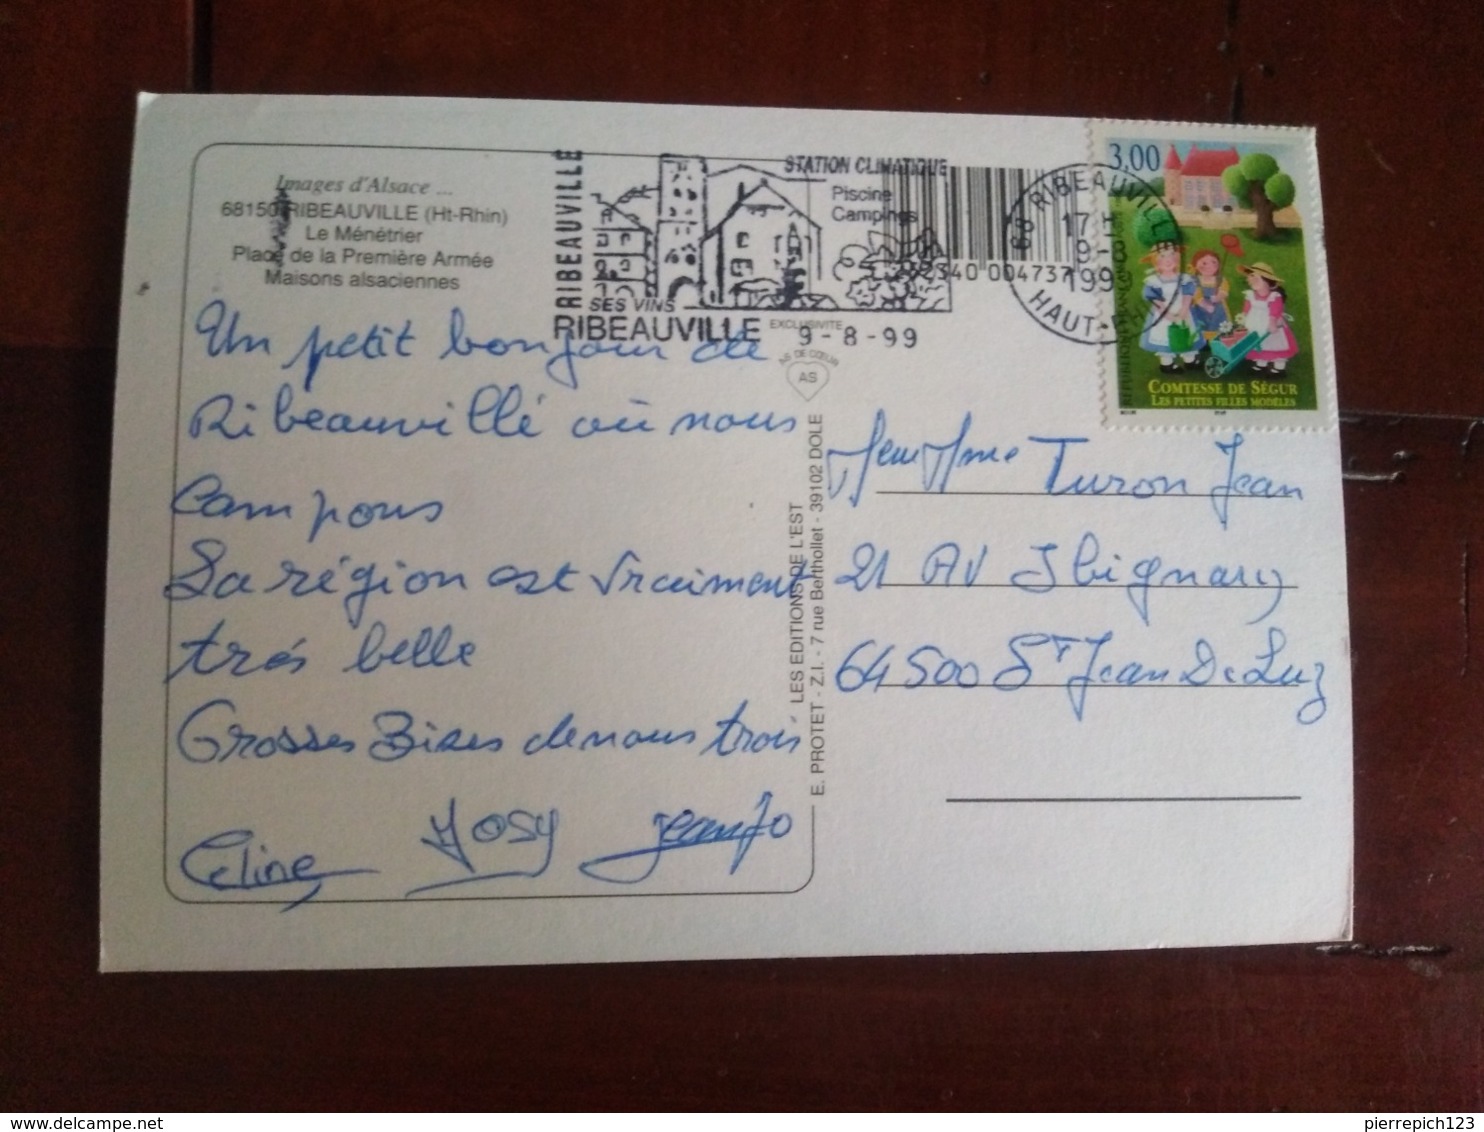 Images d'Alsace ...
68150 RIBEAUVILLE (Ht-Rhin)
Le Ménétrier
Place de la Première Armée
Maisons alsaciennes
RIBEAUVILLE
STATION CLIMATIQUE
Piscine
Campings
SES VINS
RIBEAUVILLE 9-8-99
2340 004737
68 RIBEAUVILLE
17H
9-8
199
HAUT-RHIN
3,00
COMTESSE DE SÉGUR
LES PETITES FILLES MODÈLES
EXCLUSIVITE
AS DE CŒUR
AS
Un petit bonjour de
Ribeauvillé où nous
campons
La région est vraiment
très belle
Grosses Bises de nous trois
Céline Josy Jeanjo
LES EDITIONS DE L'EST
E. PROTET - Z.I. - 7 rue Berthollet - 39102 DOLE
Mr et Mme Turon Jean
21 AV Ibignary
64500 St Jean De Luz
delcampe.net
pierrepich123